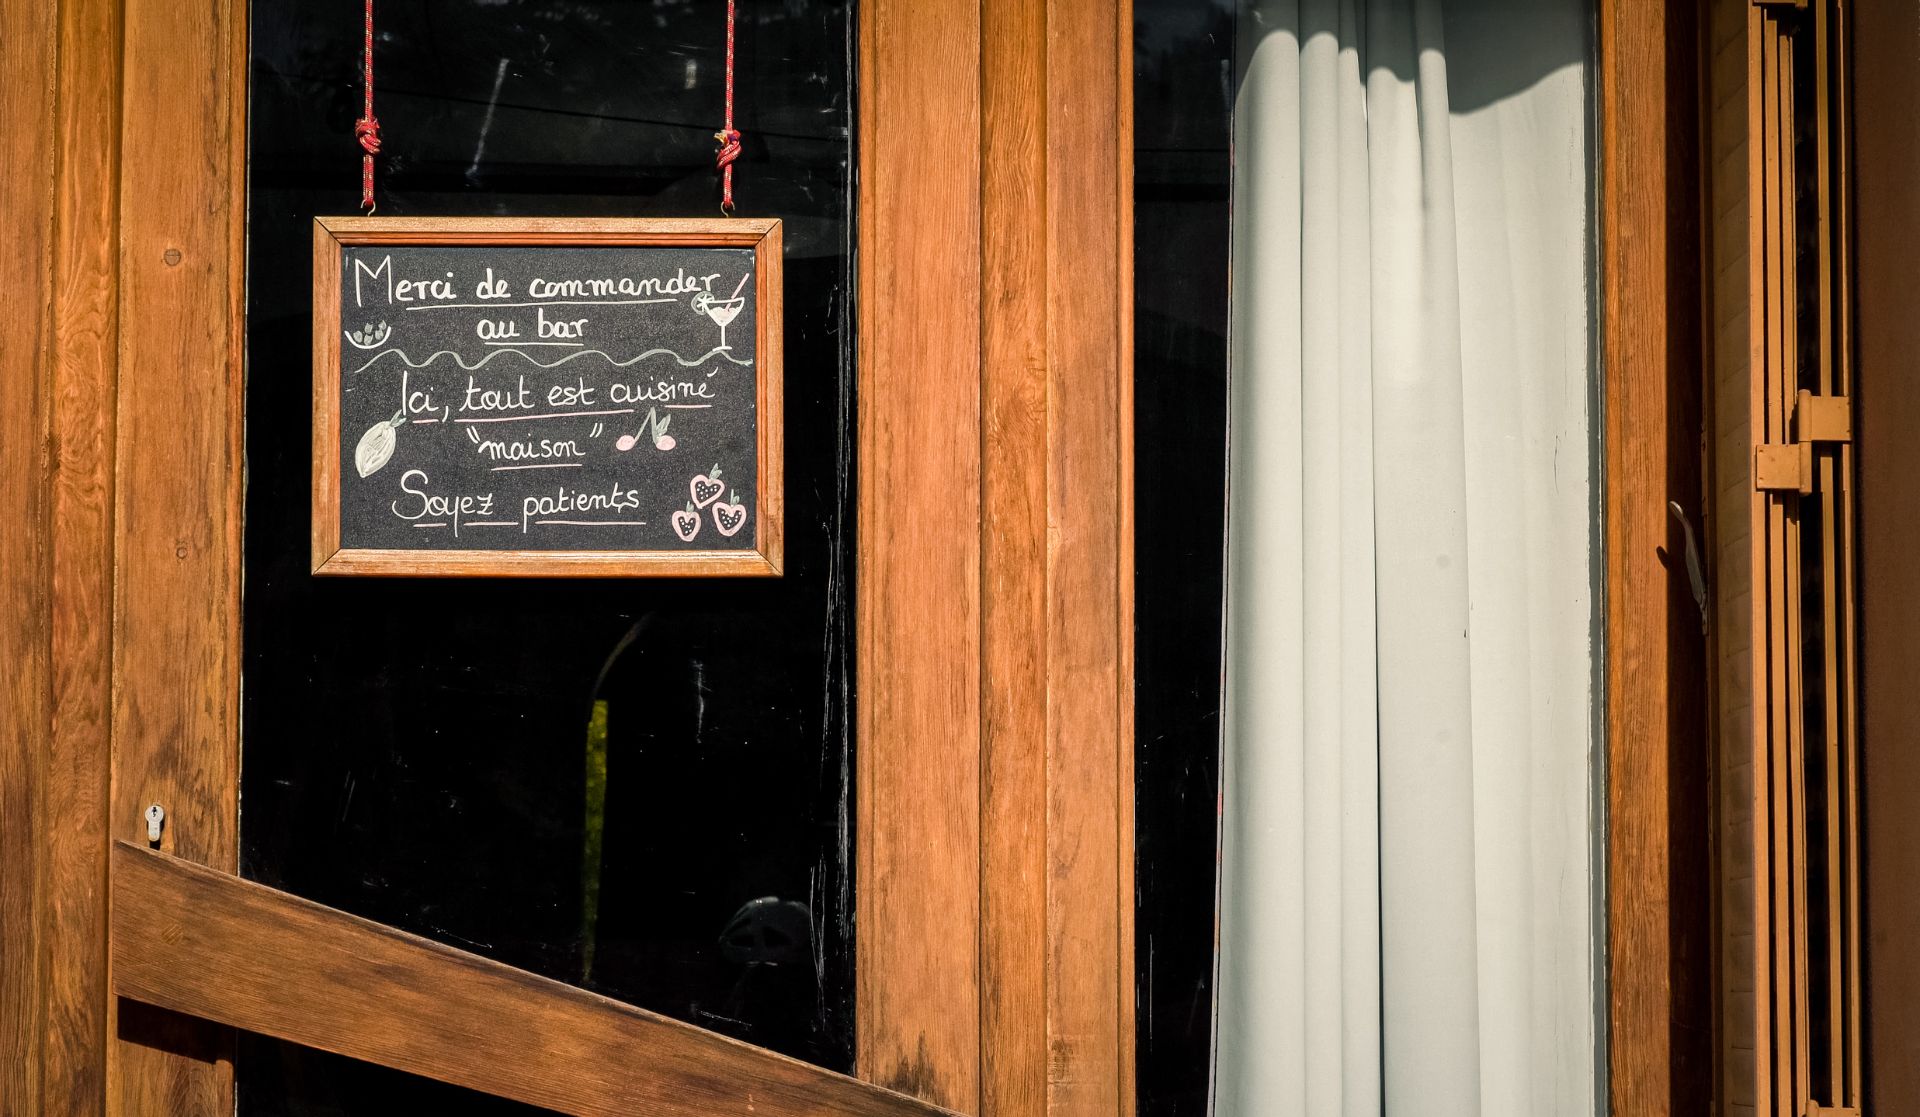 Merci de commander
au bar
Ici, tout est cuisiné
"maison"
Soyez patients